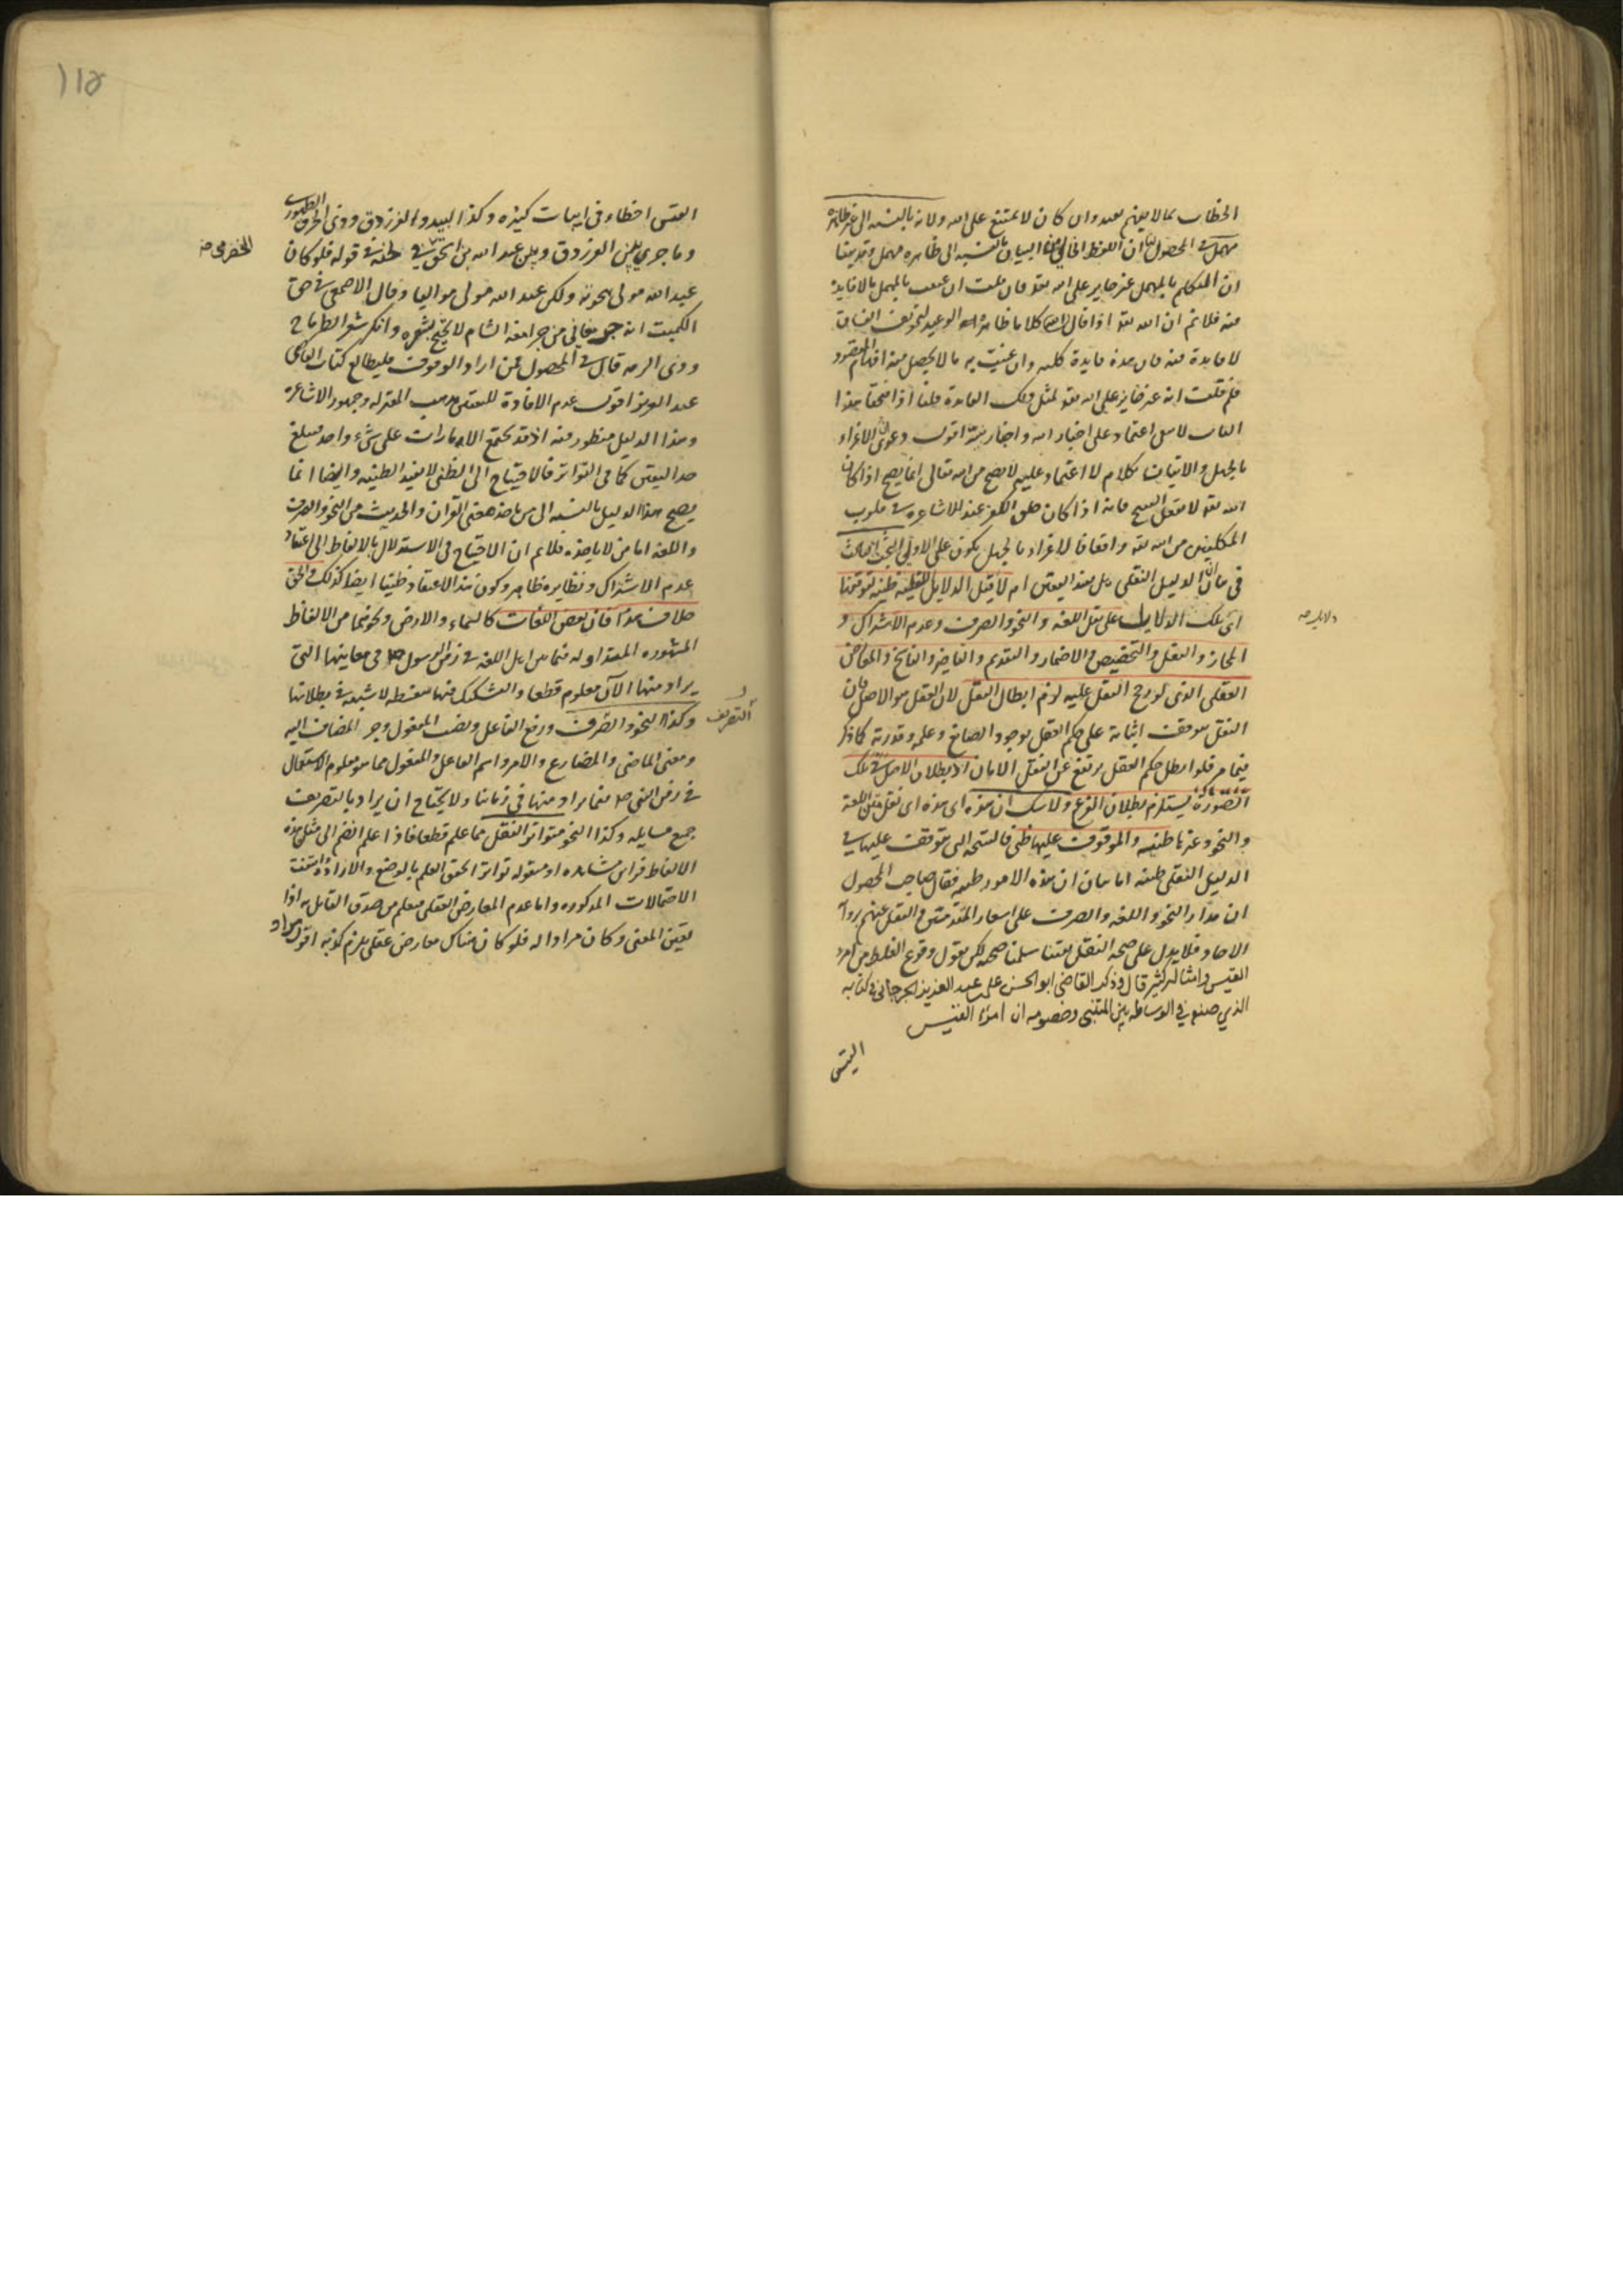 الخطاب بما لا يفهم بعيد وان كان لا يمتنع على الله ولانه بالنسبه الى غير ظاهره
مهمل في المحصول ان اللفظ الخالي عن البيان بالنسبه الى ظاهره مهمل وقد بينا
ان المتكلم بالمهمل غير جايز على الله تعو فان قلت ان عنيت بالمهمل ما لا فايدة
فيه فلا نم ان الله تعو اذا قال كلاما ظاهره الوعيد لتخويف الفساق
لا فايدة فيه فان هذه فايدة كليه وان عنيت به ما لا يحصل منه افهام المقصود
فلم قلت انه غير جايز على الله تعو لمثل تلك الفايدة قلنا اذا فتحنا هذا
الباب لا يبقى اعتماد على اخبار الله واخبار نبيه اقول دعوى ان الاغراء
بالجهل والاتيان بكلام لا اعتماد عليه لا يصح من الله تعالى انما يصح اذا كان
الله تعو لا يفعل القبيح فانه اذا كان خلق الكفر عند الاشاعره في قلوب
المكلفين من الله تعو واقعا فالاغراء بالجهل يكون على الاولى البحث الثالث
في ان الدليل النقلي هل يفيد اليقين ام لا قيل الدلايل اللفظيه ظنيه لتوقفها
اى تلك الدلايل على نقل اللغه والنحو والصرف وعدم الاشتراك و
دلايل صه
المجاز والنقل والتخصيص والاضمار والتقديم والتاخير والناسخ والمعارض
العقلى الذى لو رجح النقل عليه لزم ابطال النقل لان العقل هو الاصل فان
النقل موقف اثباته على حكم العقل بوجود الصانع وعلمه وقدرته كما ذكر
فيما مر فلو ابطل حكم العقل يرتفع عن النقل الامان اذ بطلان الاصل في تلك
الصورة يستلزم بطلان الفرع ولا شك ان هذه اى نقل متن اللغة
والنحو وغيرها ظنيه والموقوف عليها ظني فالنتيجه التى تتوقف عليها في
الدليل النقلى ظنيه اما بيان ان هذه الامور ظنيه فقال صاحب المحصول
ان مدار النحو واللغه والصرف على اشعار المتقدمين والنقل عنهم برواية
الاحاد فلا يدل على صحه النقل يقينا سلمنا صحته لكن نقول وقوع الغلط من امرء
القيس وامثاله كثير قال وذكر القاضى ابو الحسن على بن عبد العزيز الجرجانى في كتابه
الذي صنفه في الوساطه بين المتنبى وخصومه ان امرء القيس
القيس
١١٥
القيس اخطاء في ابيات كثيره وكذا لبيد والفرزدق وذى الخرق الطهوى
وما جرى بين الفرزدق وبين عبد الله بن اسحق في لحنه في قوله فلو كان
الحضرمى صه
عبد الله مولى هجوته ولكن عبد الله مولى مواليا وقال الاصمعى في حق
الكميت انه جرمقانى من جرامقه الشام لا يحتج بشعره وانكر شعر الطرماح
وذى الرمه قال في المحصول فمن اراد الوقوف فليطالع كتاب القاضى
عبد العزيز اقول عدم الافادة لليقين مذهب المعتزله وجمهور الاشاعرة
وهذا الدليل منظور فيه اذ قد تجتمع الامارات على شىء واحد فيبلغ
حد اليقين كما في التواتر فالاحتياج الى الظنى لا يفيد الظنيه وايضا انما
يصح هذا الدليل بالنسبه الى من ياخذ معنى القران والحديث من النحو والصرف
واللغه اما من لا ياخذه فلا نم ان الاحتياج في الاستدلال بالالفاظ الى اعتقاد
عدم الاشتراك ونظايره ظاهر وكون هذا الاعتقاد ظنيا ايضا كذلك والحق
خلاف هذا فان بعض اللغات كالسماء والارض ونحوهما من الالفاظ
المشهوره المتداوله فيما بين اهل اللغه في زمن الرسول صلع في معانيها التى
يراد منها الآن معلوم قطعا والتشكيك فيها سفسطه لا شبهه في بطلانها
وكذا النحو والصرف ورفع الفاعل ونصب المفعول وجر المضاف اليه
والتصريف
ومعنى الماضى والمضارع والامر واسم الفاعل والمفعول مما هو معلوم الاستعمال
في زمن النبى صلع فيما يراد منها في زماننا ولا يحتاج ان يراد بالتصريف
جميع مسايله وكذا النحو متواتر النقل مما علم قطعا فاذا علم انضم الى مثل هذه
الالفاظ قراين مشاهده او منقوله تواترا تحقق العلم بالوضع والاراده وانتفت
الاحتمالات المذكوره واما عدم المعارض العقلى فيعلم من صدق القايل به اذا
تعين المعنى وكان مرادا له فلو كان هناك معارض عقلى يلزم كونه اقول مراد